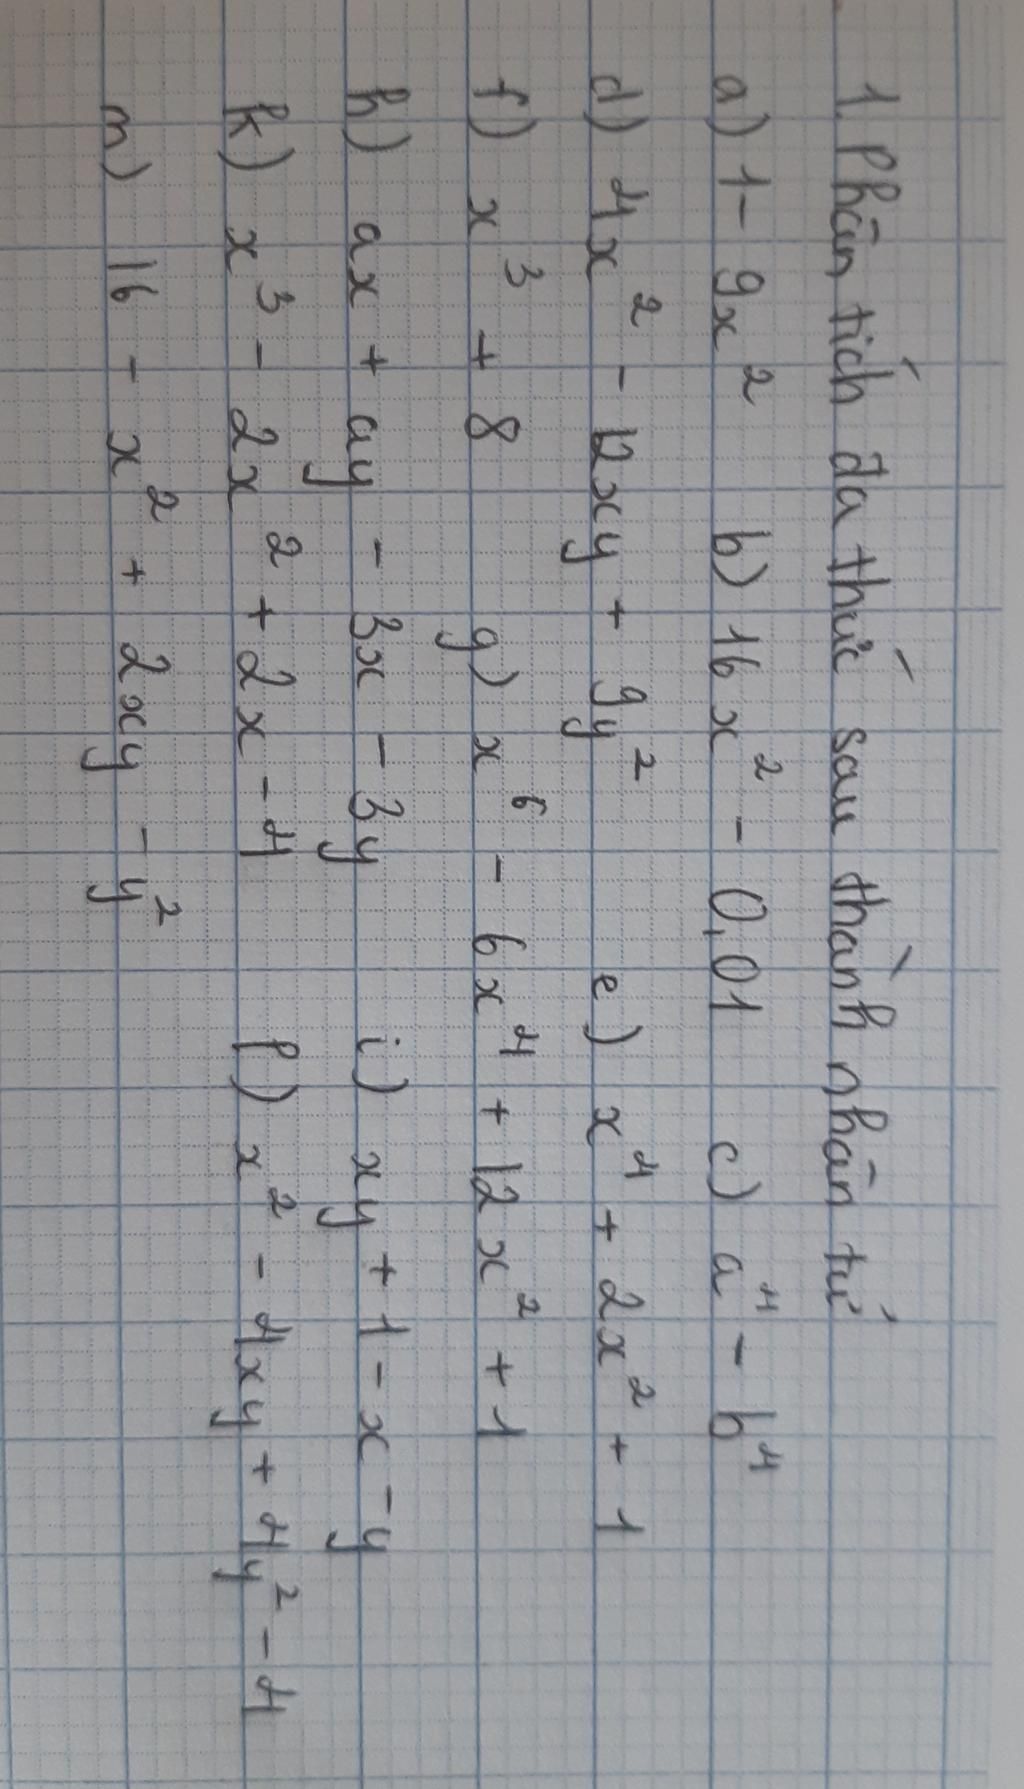 1. Phân tích đa thức sau thành nhân tử
a) 1 - 9x² b) 16x² - 0,01 c) a⁴ - b⁴
d) 4x² - 12xy + 9y² e) x⁴ + 2x² + 1
f) x³ + 8 g) x⁶ - 6x⁴ + 12x² + 1
h) ax + ay - 3x - 3y i) xy + 1 - x - y
k) x³ - 2x² + 2x - 4 l) x² - 4xy + 4y² - 4
m) 16 - x² + 2xy - y²